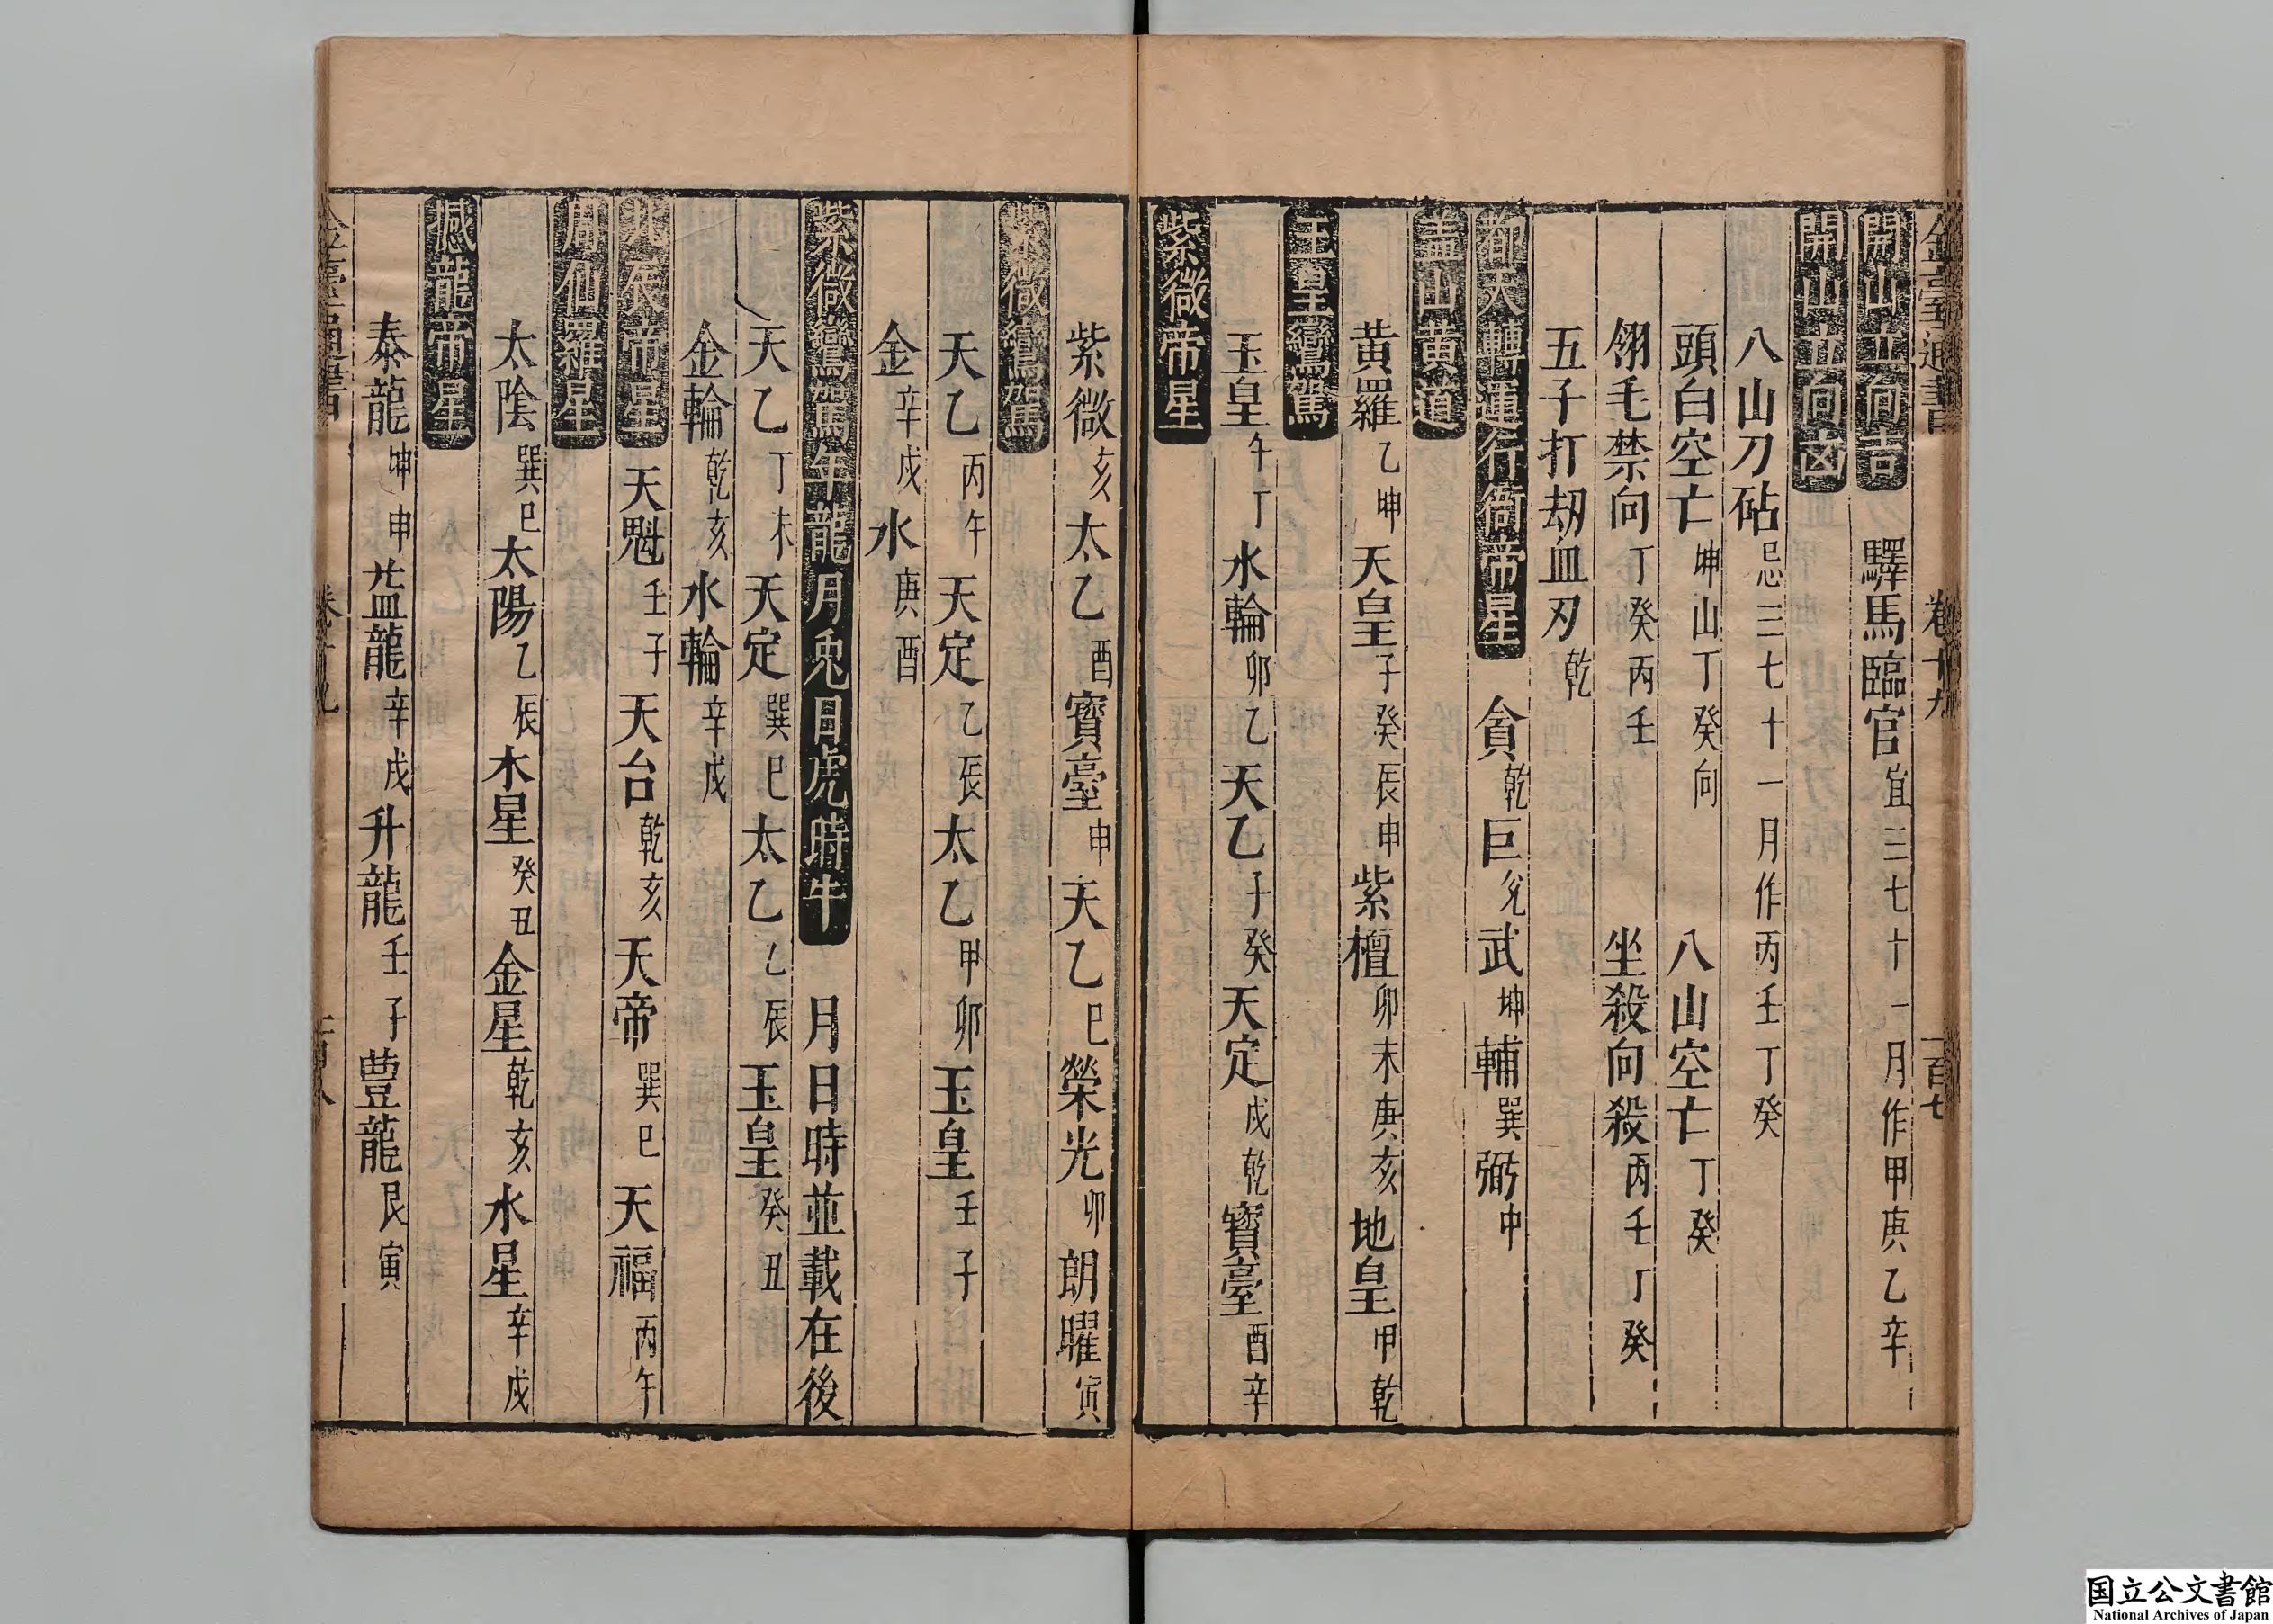 金臺通書 卷十九 一百七
開山立向吉 驛馬臨官宜三七十一月作甲庚乙辛
開山立向凶
八山刀砧忌三七十一月作丙壬丁癸
頭白空亡坤山丁癸向 八山空亡丁癸
翎毛禁向丁癸丙壬 坐殺向殺丙壬丁癸
五子打刼血刃乾
都天轉運行衙帝星 貪乾巨兊武坤輔巽弼中
蓋山黄道
黄羅乙坤天皇子癸辰申紫檀卯未庚亥地皇甲乾
玉皇鸞駕
玉皇午丁水輪卯乙天乙子癸天定戌乾寳臺酉辛
紫微帝星
紫微亥太乙酉寳臺申天乙巳榮光卯朗曜寅
紫微鸞駕
天乙丙午天定乙辰太乙甲卯玉皇壬子
金辛戌水庚酉
紫微鸞駕年龍月兎日虎時牛 月日時並載在後
天乙丁未天定巽巳太乙乙辰玉皇癸丑
金輪乾亥水輪辛戌
北辰帝星 天魁壬子天台乾亥天帝巽巳天福丙午
周仙羅星
太陰巽巳太陽乙辰木星癸丑金星乾亥水星辛戌
撼龍帝星
泰龍坤申益龍辛戌升龍壬子豊龍艮寅
国立公文書館
National Archives of Japan